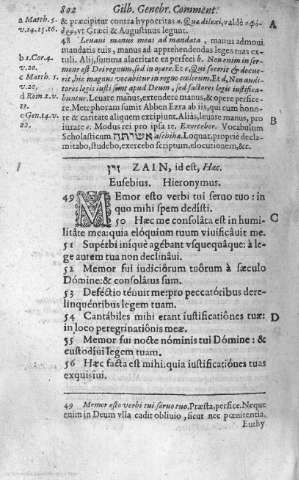 802 Gilb. Genebr. Comment.
a Matth. 5. & præcipitur contra hypocritas a. Quæ dilexi, valdè
v. 24. 15. 16. vt Græci & Augustinus legunt. A
48 Leuaui manus meas ad mandata, manus admoui
mandatis tuis, manus ad apprehendendas leges tuas extuli.
b 1. Cor. 4. Alij, summa alacritate ea perfeci b. Non enim in sermone
v. 20. est Dei regnum, sed in opere. Et c, Qui fecerit & docuerit,
c Matth. 5. hic magnus vocabitur in regno cælorum. Et d, Non auditores
v. 20. legis iusti sunt apud Deum, sed factores legis iustificabuntur.
d Rom. 2. v. 13. Leuare manus, extendere manus, & opere perficere.
Metaphoram sumit Abben Ezra ab iis, qui cum honore
e Gen. 14. v. & caritate aliquem excipiunt. Alias, leuare manus, pro
22. iurare e. Modus rei pro ipsa re. Exercebor. Vocabulum B
Scholasticum Loquar, propriè declamitabo,
studebo, exercebo scriptum, elocutionem, &c.
זין ZAIN, id est, Hæc.
Eusebius. Hieronymus.
49 Memor esto verbi tui seruo tuo: in
quo mihi spem dedisti.
50 Hæc me consolata est in humilitate C
mea: quia eloquium tuum viuificauit me.
51 Supérbi iníquè agébant vsquequáque: à lege
autem tua non declinâui.
52 Memor fui iudiciórum tuórum à sæculo
Dómine: & consolátus sum.
53 Deféctio ténuit me: pro peccatóribus derelinquéntibus
legem tuam.
54 Cantábiles mihi erant iustificatiónes tuæ: D
in loco peregrinatiónis meæ.
55 Memor fui nocte nóminis tui Dómine: &
custodíui legem tuam.
56 Hæc facta est mihi: quia iustificatiónes tuas
exquisíui.
49 Memor esto verbi tui seruo tuo. Præsta, perfice. Neque
enim in Deum vlla cadit obliuio, sicut nec pœnitentia.
Euthy